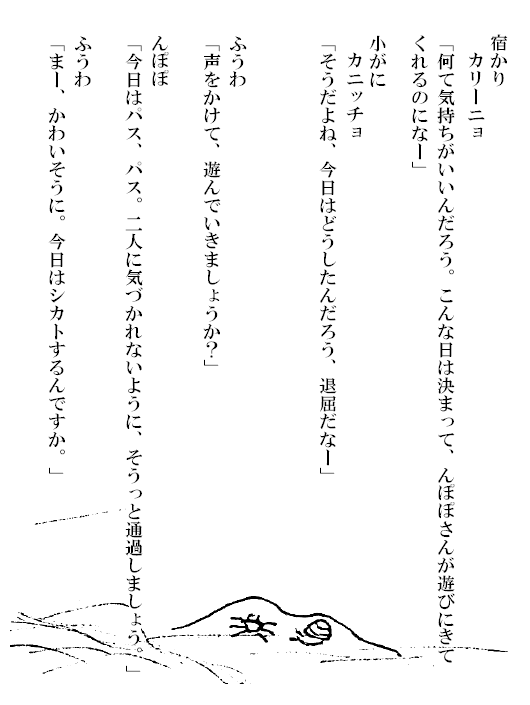 宿かり
カリーニョ
「何て気持ちがいいんだろう。こんな日は決まって、んぽぽさんが遊びにきて
くれるのになー」
小がに
カニッチョ
「そうだよね、今日はどうしたんだろう、退屈だなー」
ふうわ
「声をかけて、遊んでいきましょうか？」
んぽぽ
「今日はパス、パス。二人に気づかれないように、そうっと通過しましょう。」
ふうわ
「まー、かわいそうに。今日はシカトするんですか。」